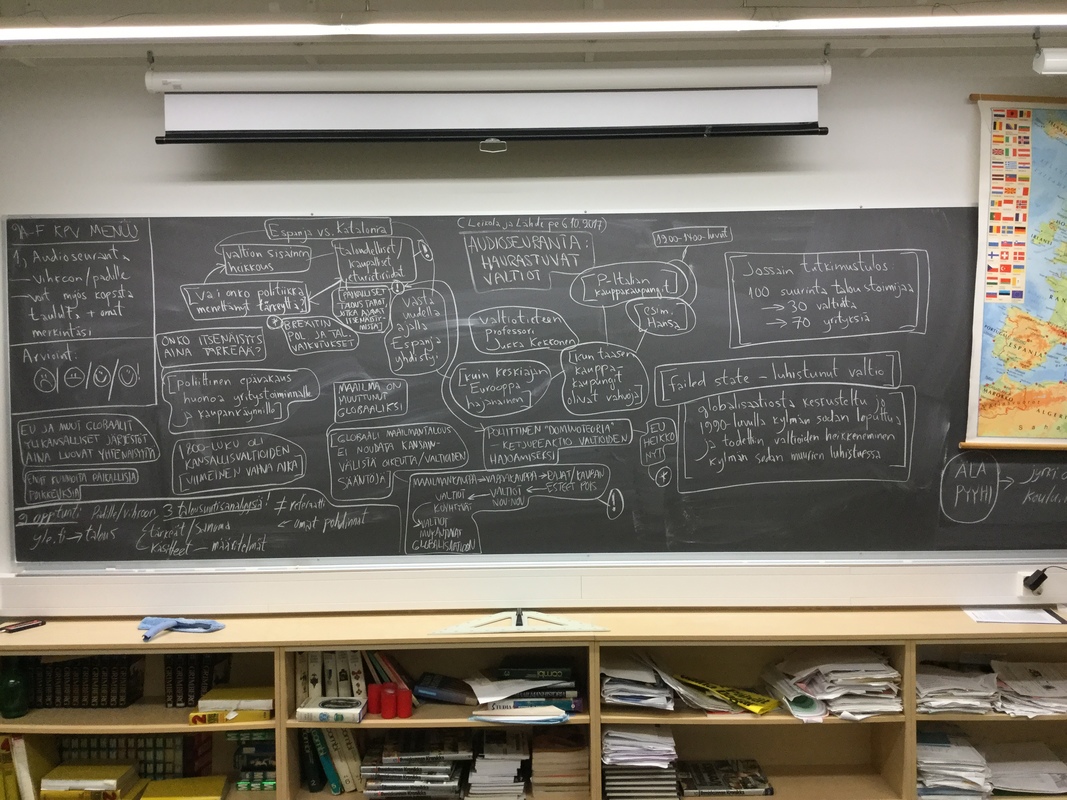 9A-F KPV MENÜÜ
1, Audioseuranta
– vihkoon/padille
– voit myös kopsata
taululta + omat
merkintäsi
Arvioint.
EU JA MUUT GLOBAALIT
YLIKANSALLISET JÄRJESTÖT
AINA LUOVAT YHTENÄISYYTTÄ
PAIKALLISIA
POIKKEUKSIA
Espanja vs. Katalonia
valtion sisäinen
heikkous
taloudelliset/
kaupalliset
eturistiriidat
!
[vai onko politiikka
menettänyt tärkeyttä?]
PAIKALLISET
TALOUSTAHOT,
JOTKA AJAVAT
ITSENÄISTY-
MISTÄ!
!
vasta
uudella
ajalla
Espanja
yhdistyi
BREXITIN
POL JA TAL
VAIKUTUKSET
ONKO ITSENÄISYYS
AINA TÄRKEÄÄ?
[poliittinen epävakaus
huonoa yritystoiminnalle
ja kaupankäynnille]
MAAILMA ON
MUUTTUNUT
GLOBAALIKSI
1800-LUKU OLI
KANSALLISVALTIOIDEN
VIIMEINEN VAHVA AIKA
[GLOBAALI MAAILMANTALOUS
EI NOUDATA KANSAIN-
VÄLISTÄ OIKEUTTA/VALTIOIDEN
SÄÄNTÖJÄ]
(Leikola ja Lähde pe 6.10.2017)
AUDIOSEURANTA:
HAURASTUVAT
VALTIOT
1300-1400-luvut
P-Italian
kauppakaupungit
esim.
Hansa
valtiotieteen
professori
Jukka Kekkonen
[kuin keskiajan
Eurooppa
hajanainen]
[kun taas
kauppa-
kaupungit
olivat vahvoja]
POLIITTINEN "DOMINOTEORIA"
– KETJUREAKTIO VALTIOIDEN
HAJOAMISEKSI
EU
HEIKKO
NYT!
MAAILMANKAUPPA → VAPAAKAUPPA → RAJAT/KAUPAN
ESTEET POIS
VALTIOT
NOU-NOU
VALTIOT
VALTIOT
MUKAUTUVAT
GLOBALISAATIOON
!
Jossain tutkimustulos:
100 suurinta taloustoimijaa
→ 30 valtiota
→ 70 yrityksiä
[failed state – luhistunut valtio]
globalisaatiosta keskusteltu jo
1990-luvulla kylmän sodan loputtua
ja todettiin valtioiden heikkeneminen
kylmän sodan muurien luhistuessa
ÄLÄ
PYYHI
2) oppitunti: Padille/vihkoon 3 talousuutisanalyysiä! ≠ referaatti
yle.fi → talous
tärkeät/sanoma
← omat pohdinnat
käsitteet – määritelmät
ESPAÑA